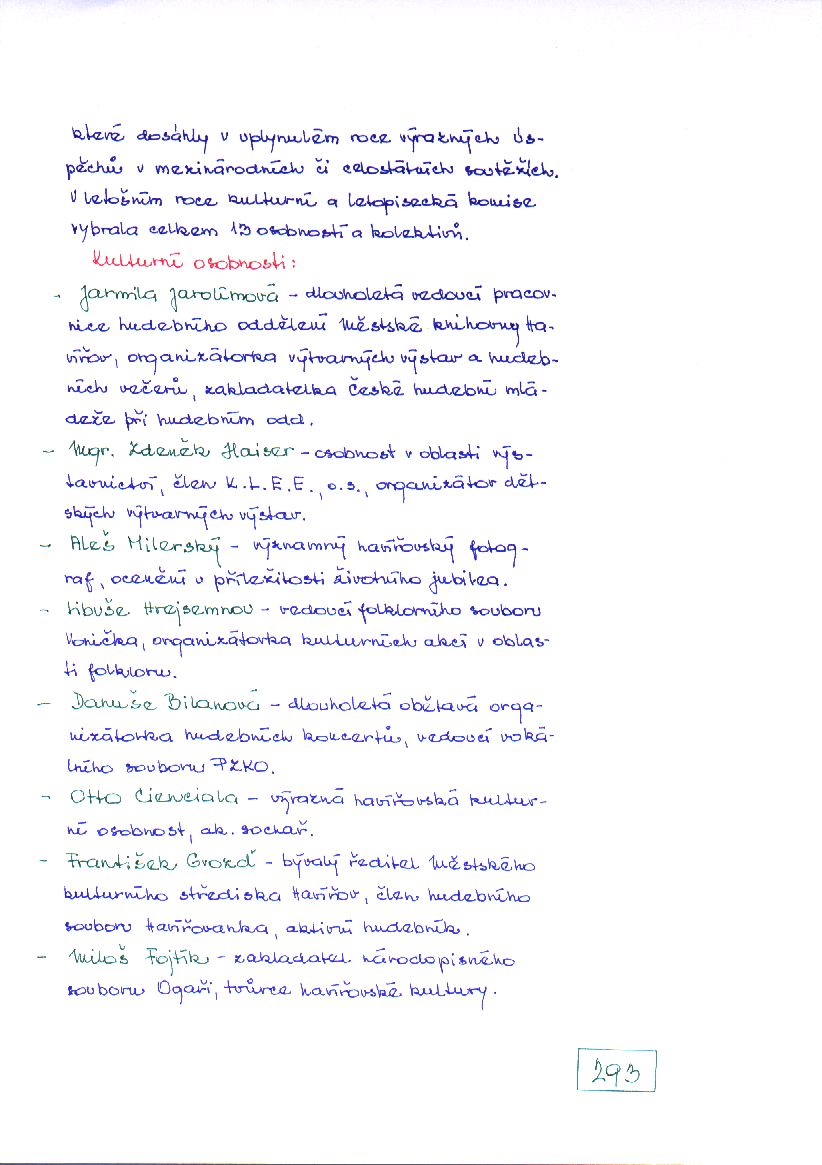 které dosáhly v uplynulém roce výrazných ús-
pěchů v mezinárodních či celostátních soutěžích.
V letošním roce kulturní a letopisecká komise
vybrala celkem 13 osobností a kolektivů.
Kulturní osobnosti:
- Jarmila Jarolímová - dlouholetá vedoucí pracov-
nice hudebního oddělení Městské knihovny Ha-
vířov, organizátorka výtvarných výstav a hudeb-
ních večerů, zakladatelka České hudební mlá-
deže při hudebním odd.
- Mgr. Zdeněk Haiser - osobnost v oblasti výs-
tavnictví, člen K.L.E.E., o.s., organizátor dět-
ských výtvarných výstav.
- Aleš Milerský - významný havířovský fotog-
raf, ocenění u příležitosti životního jubilea.
- Libuše Hrejsemnou - vedoucí folklorního souboru
Vonička, organizátorka kulturních akcí v oblas-
ti folkloru.
- Danuše Bilanová - dlouholetá obětavá orga-
nizátorka hudebních koncertů, vedoucí voká-
lního souboru PZKO.
- Otto Cienciala - výrazná havířovská kultur-
ní osobnost, ak. sochař.
- František Grozď - bývalý ředitel Městského
kulturního střediska Havířov, člen hudebního
souboru Havířovanka, aktivní hudebník.
- Miloš Fojtík - zakladatel národopisného
souboru Ogaři, tvůrce havířovské kultury.
293